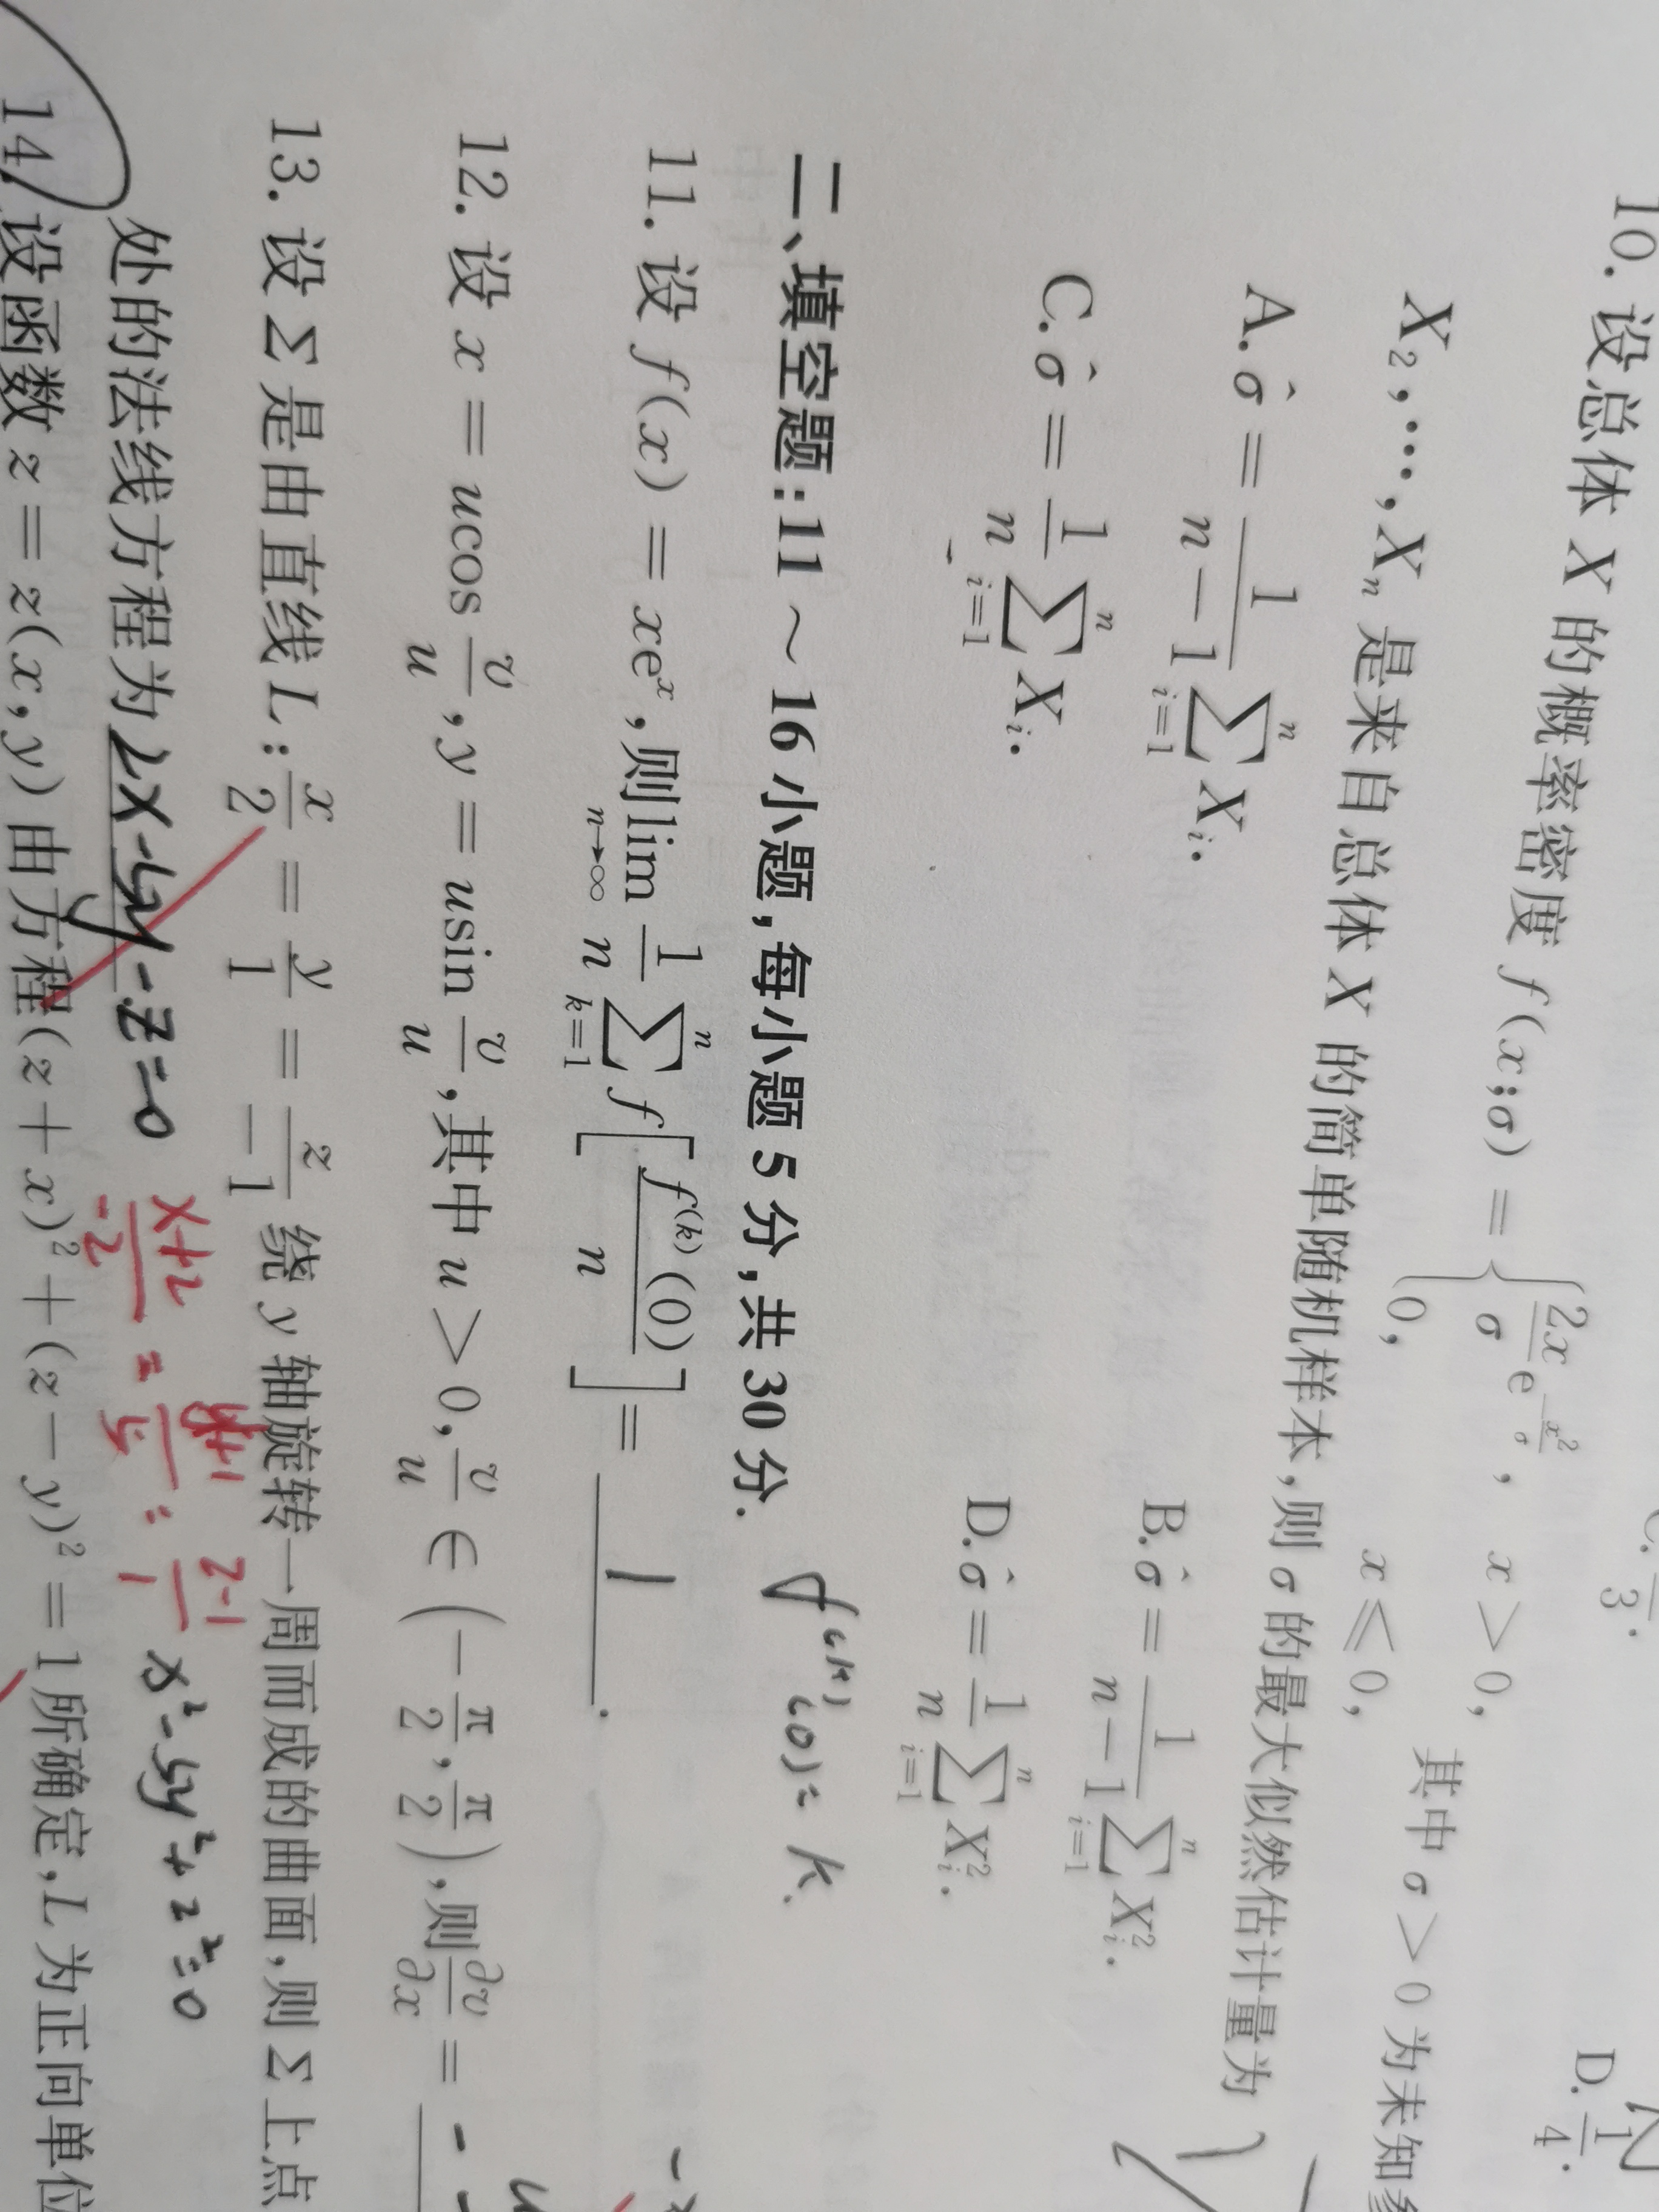 C. \frac{}{3}. D. \frac{1}{4}.
10. 设总体 X 的概率密度 f(x;σ) = { \frac{2x}{σ}e^{-\frac{x^2}{σ}}, x > 0, 0, x ⩽ 0, 其中 σ > 0 为未知参
X_2,⋯,X_n 是来自总体 X 的简单随机样本,则 σ 的最大似然估计量为
A. \hat{σ} = \frac{1}{n-1}\sum_{i=1}^{n} X_i. B. \hat{σ} = \frac{1}{n-1}\sum_{i=1}^{n} X_i^2.
C. \hat{σ} = \frac{1}{n}\sum_{i=1}^{n} X_i. D. \hat{σ} = \frac{1}{n}\sum_{i=1}^{n} X_i^2.
二、填空题:11 ~ 16 小题,每小题 5 分,共 30 分.
f^{(k)}(0) = k
11. 设 f(x) = xe^x,则 \lim_{n→∞} \frac{1}{n}\sum_{k=1}^{n} f[\frac{f^{(k)}(0)}{n}] = 1.
12. 设 x = ucos\frac{v}{u}, y = usin\frac{v}{u},其中 u > 0, \frac{v}{u} ∈ (-\frac{π}{2}, \frac{π}{2}),则 \frac{∂v}{∂x} =
13. 设 Σ 是由直线 L: \frac{x}{2} = \frac{y}{1} = \frac{z}{-1} 绕 y 轴旋转一周而成的曲面,则 Σ 上点
处的法线方程为 2x-5y-z=0
\frac{x+2}{-2} = \frac{y+1}{5} = \frac{z-1}{1}
x^2-5y^2+z^2=0
14. 设函数 z = z(x,y) 由方程 (z+x)^2 + (z-y)^2 = 1 所确定, L 为正向单位